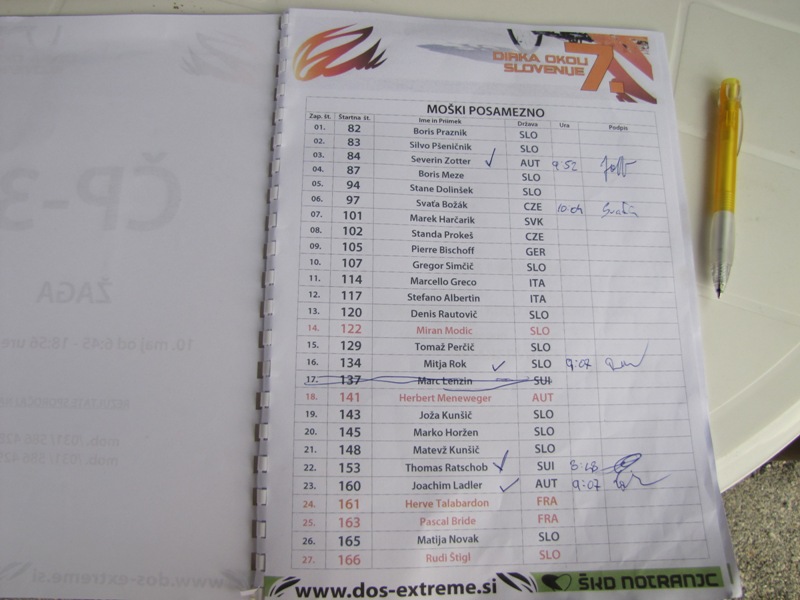 DIRKA OKOLI
SLOVENIJE 7.
MOŠKI POSAMEZNO
Zap. št. Štartna št. Ime in Priimek Država Ura Podpis
01. 82 Boris Praznik SLO
02. 83 Silvo Pšeničnik SLO
03. 84 Severin Zotter AUT 9:52
04. 87 Boris Meze SLO
05. 94 Stane Dolinšek SLO
06. 97 Svaťa Božák CZE 10:04
07. 101 Marek Harčarik SVK
08. 102 Standa Prokeš CZE
09. 105 Pierre Bischoff GER
10. 107 Gregor Simčič SLO
11. 114 Marcello Greco ITA
12. 117 Stefano Albertin ITA
13. 120 Denis Rautovič SLO
14. 122 Miran Modic SLO
15. 129 Tomaž Perčič SLO
16. 134 Mitja Rok SLO 9:07
17. 137 Marc Lenzin SUI
18. 141 Herbert Meneweger AUT
19. 143 Joža Kunšič SLO
20. 145 Marko Horžen SLO
21. 148 Matevž Kunšič SLO
22. 153 Thomas Ratschob SUI 8:48
23. 160 Joachim Ladler AUT 9:07
24. 161 Herve Talabardon FRA
25. 163 Pascal Bride FRA
26. 165 Matija Novak SLO
27. 166 Rudi Štigl SLO
www.dos-extreme.si ŠKD NOTRANJC
ČP-3
ŽAGA